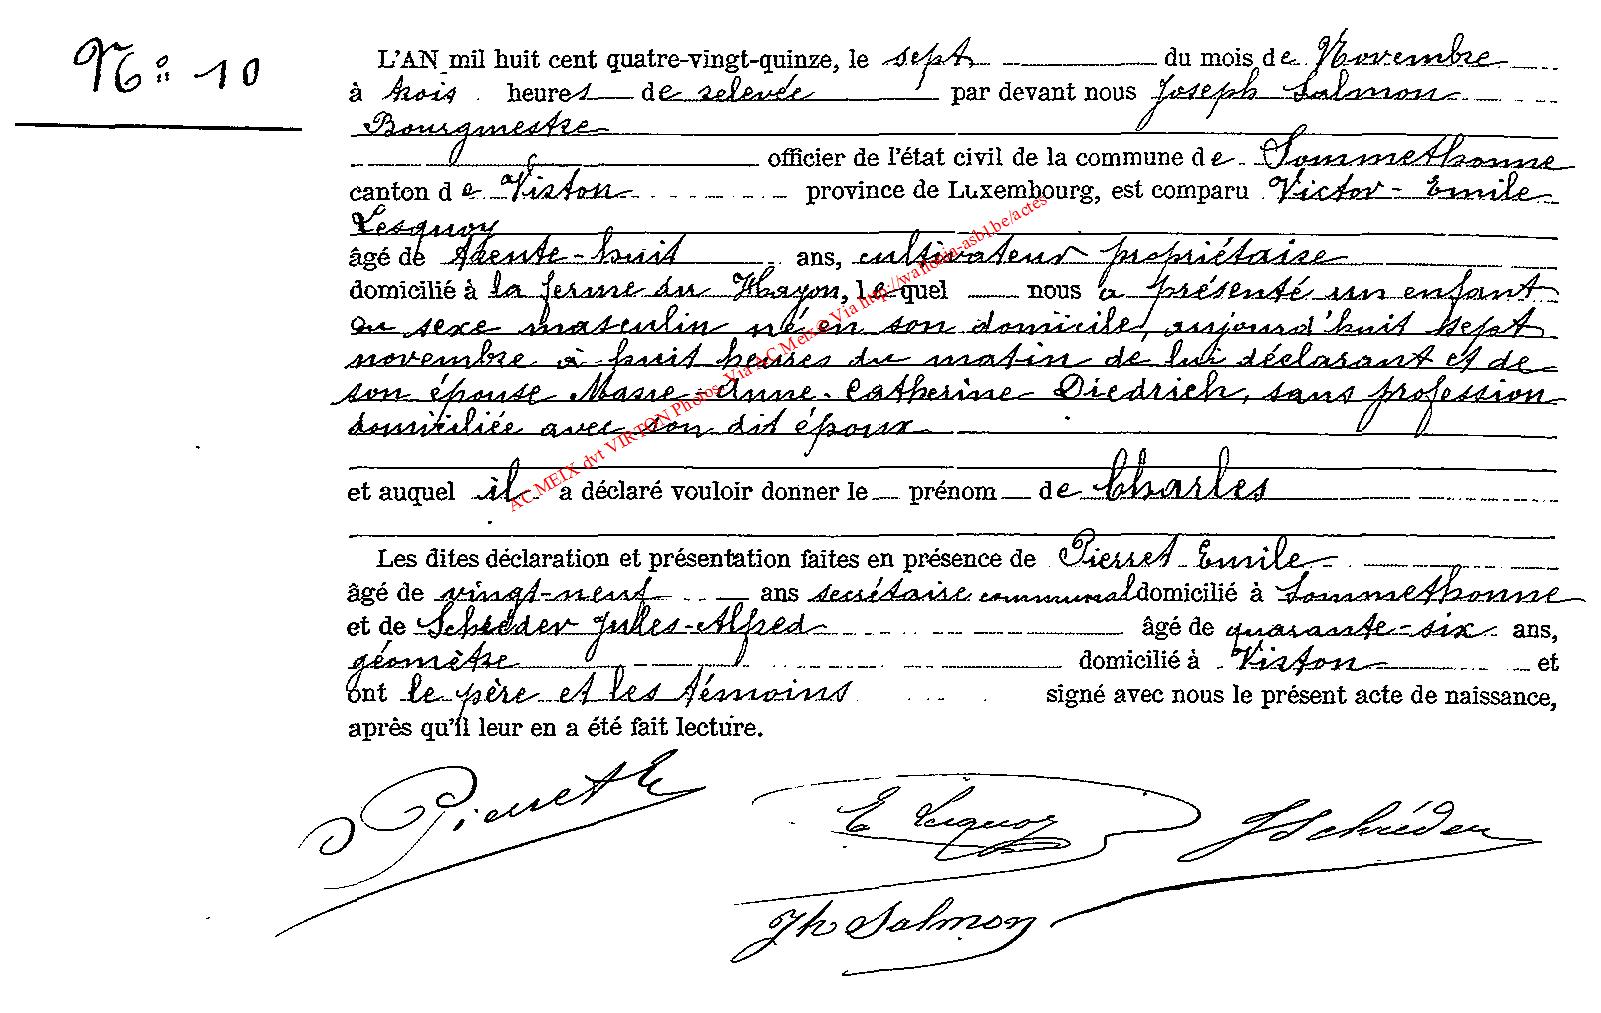 N° 10
L'AN mil huit cent quatre-vingt-quinze, le sept du mois de Novembre
à trois heures de relevée par devant nous Joseph Salmon
Bourgmestre
officier de l'état civil de la commune de Sommethonne
canton de Virton province de Luxembourg, est comparu Victor-Emile
Lesquoy
âgé de trente-huit ans, cultivateur propriétaire
domicilié à la ferme du Hayon, lequel nous a présenté un enfant
du sexe masculin né en son domicile, aujourd'huit sept
novembre à huit heures du matin de lui déclarant et de
son épouse Marie-Anne-Catherine Diedrich, sans profession
domiciliée avec son dit époux
et auquel il a déclaré vouloir donner le prénom de Charles
Les dites déclaration et présentation faites en présence de Pierret Emile
âgé de vingt-neuf ans secrétaire communal domicilié à Sommethonne
et de Schréder Jules-Alfred âgé de quarante-six ans,
géomètre domicilié à Virton et
ont le père et les témoins signé avec nous le présent acte de naissance,
après qu'il leur en a été fait lecture.
Pierret E
E Lesquoy
J Schréder
Jh Salmon
AC MEIX dvt VIRTON Photos Via AC Meix Via http://wallonia-asbl.be/actes